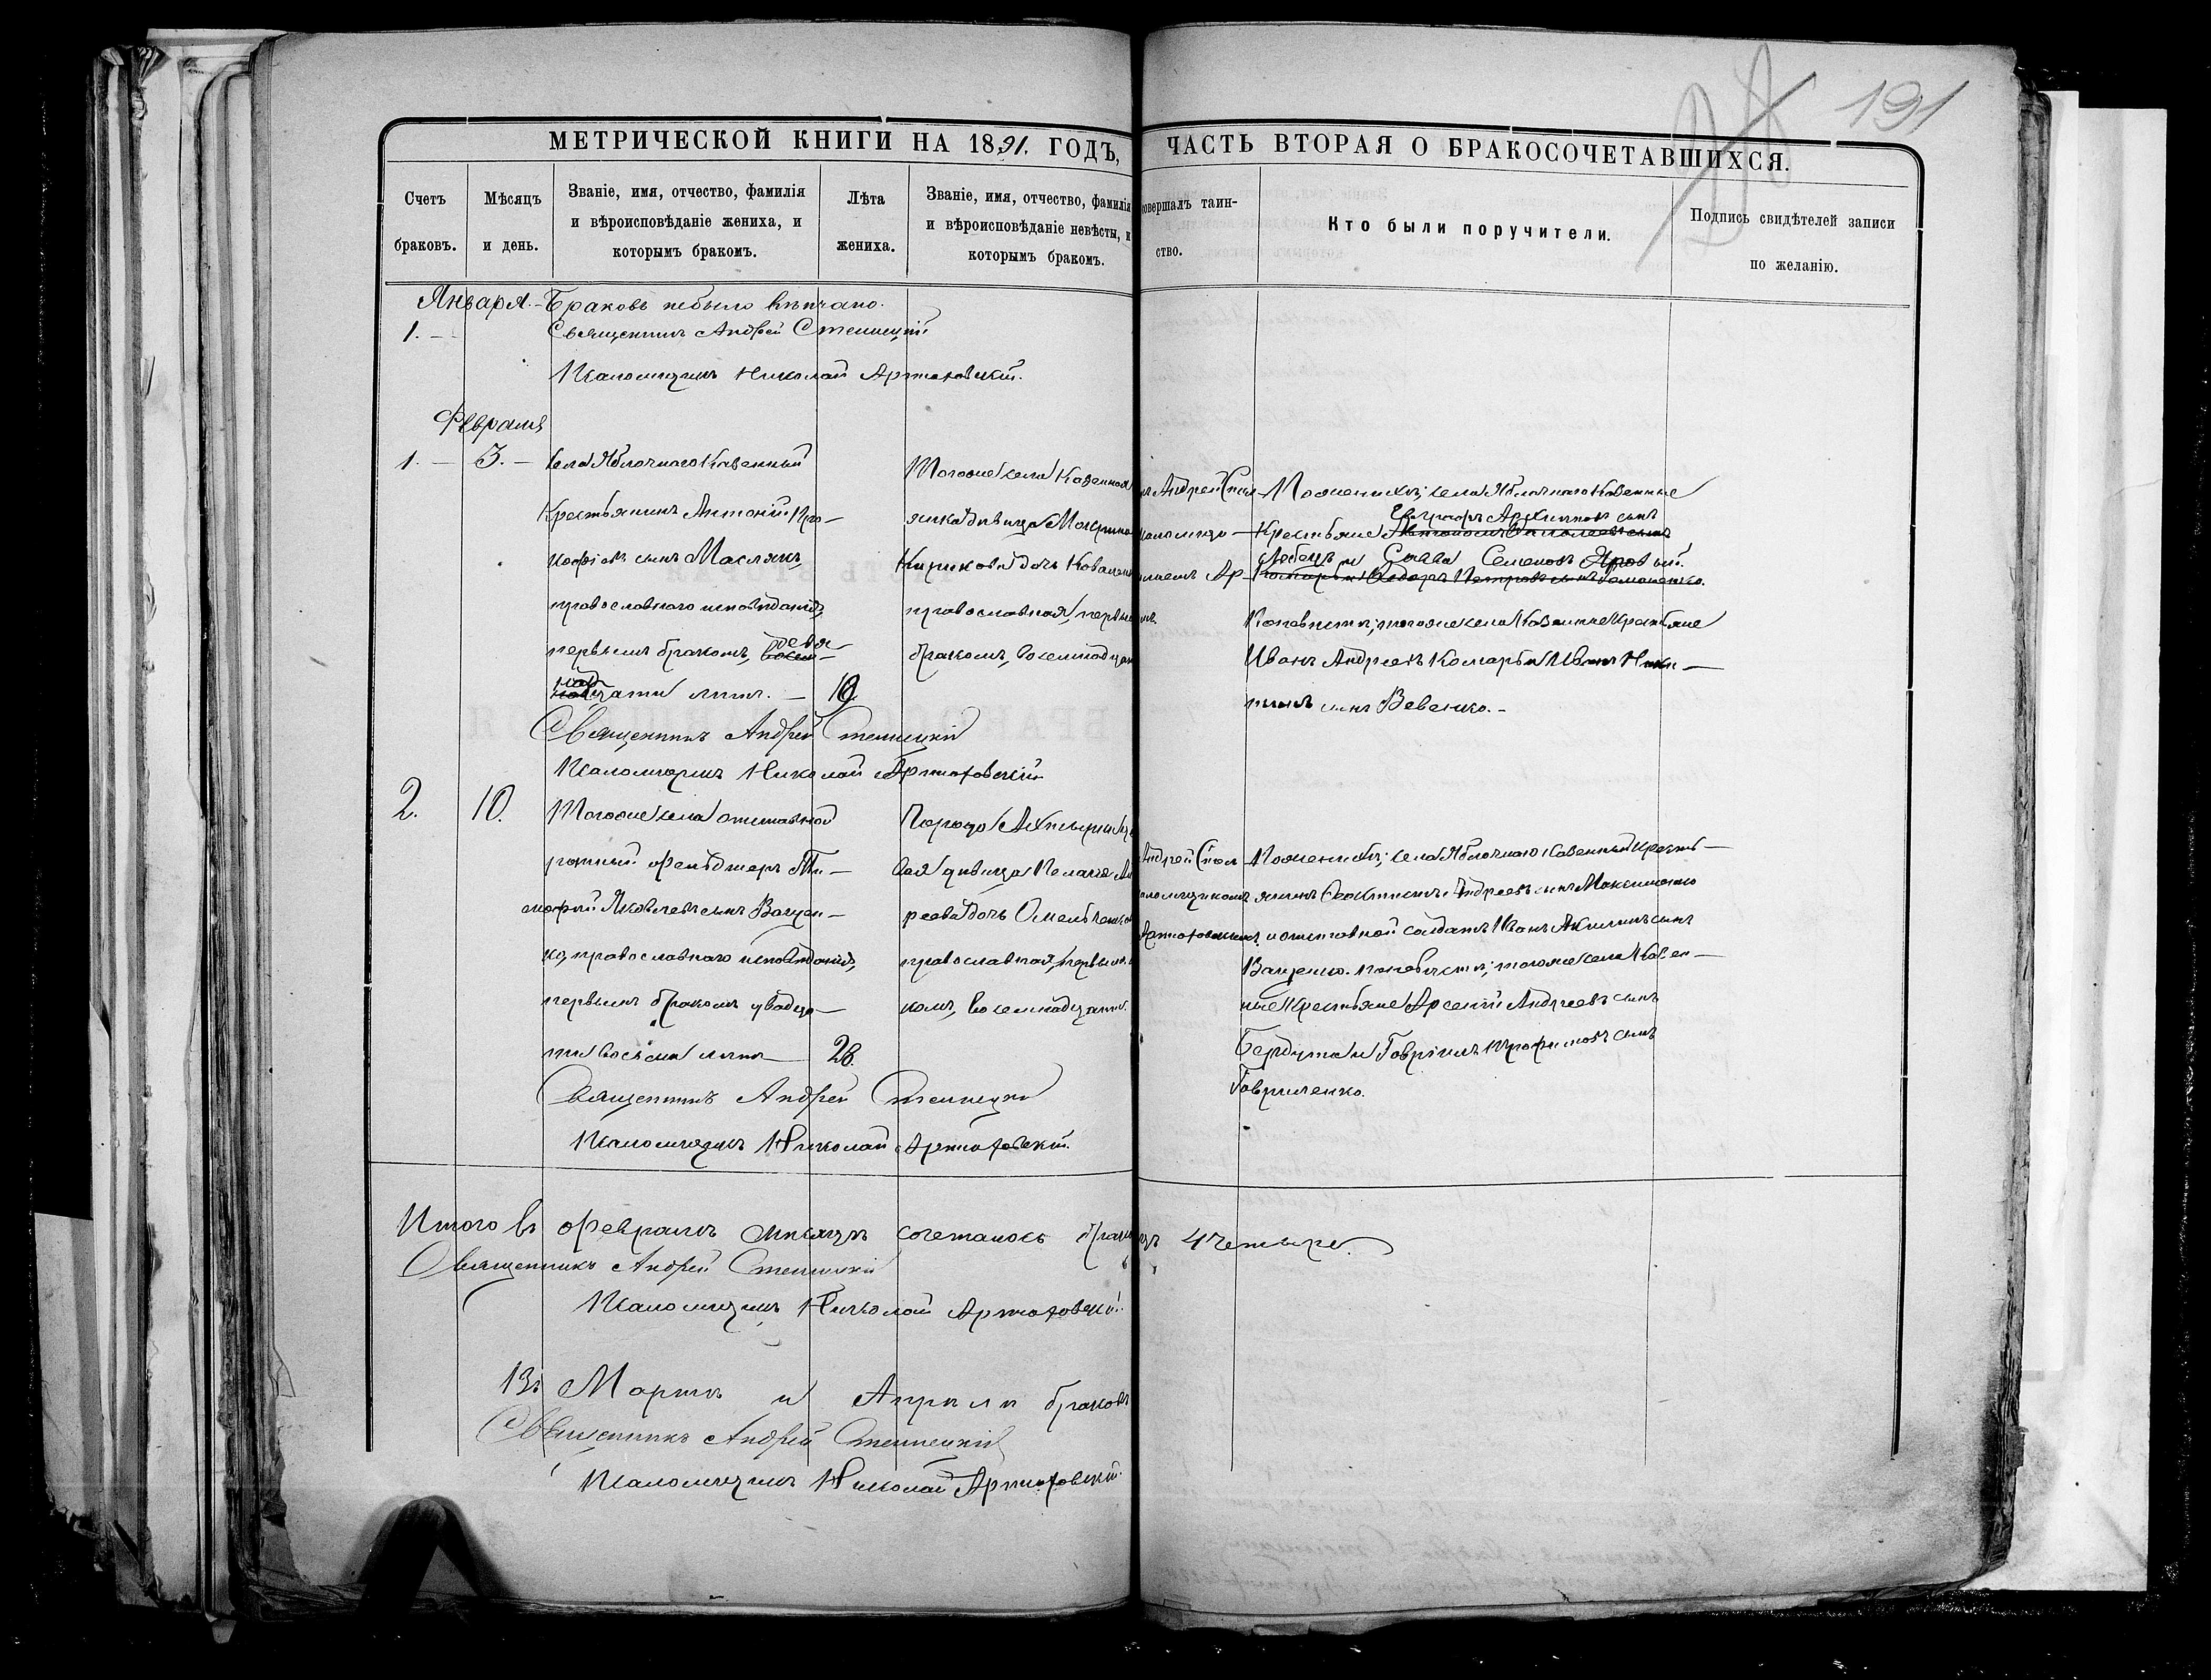 191
МЕТРИЧЕСКОЙ КНИГИ НА 1891. ГОДЪ,
ЧАСТЬ ВТОРАЯ О БРАКОСОЧЕТАВШИХСЯ.
Счетъ браковъ.
Мѣсяцъ и день.
Званіе, имя, отчество, фамилія
и вѣроисповѣданіе жениха, и
которымъ бракомъ.
Лѣта
жениха.
Званіе, имя, отчество, фамилія
и вѣроисповѣданіе невѣсты, и
которымъ бракомъ.
совершалъ таин-
ство.
Кто были поручители.
Подпись свидѣтелей записи
по желанію.
Января. - Браковъ небыло вѣнчано.
1. - Священникъ Андрей Стеллецкій
Псаломщикъ Николай Артюховскій.
Февраля
1. - 3. - села Яблочнаго Казенный
Крестьянинъ Антоній Про-
кофіевъ сынъ Маслякъ,
православнаго исповѣданія,
первымъ бракомъ, девя-
надцати лѣтъ. - 19
Тогоже села Казенная
дѣвица
Кирикова дочь
православная, первымъ
бракомъ, восемнадцати
Андрей
По женихѣ; села Яблочнаго Казенные
Крестьяне
сынъ
и Савва Семеновъ
По невѣстѣ; тогоже села Казенные Крестьяне
Иванъ Андреевъ Комаръ и Иванъ Ники-
тинъ сынъ Вевенко. -
Священникъ Андрей Стеллецкій
Псаломщикъ Николай Артюховскій
2. 10. Тогоже села отставной
ротный фельдшеръ Ти-
мофей Яковлевъ сынъ Ващен-
ко, православнаго исповѣданія,
первымъ бракомъ двадца-
ти восьми лѣтъ - 28.
Города Ахтырки
дѣвица Пелагія Ан
реева дочь Омельченкова
православная, первымъ
комъ, восемнадцати.
Андрей Стел
аломщикомъ
Артюховскимъ.
По женихѣ; села Яблочнаго Казенный Кресть-
янинъ Андреевъ сынъ Максименко
и отставной солдатъ Иванъ Акилинъ сынъ
Ващенко. по невѣстѣ; тогоже села Казен-
ные Крестьяне Арсеній Андреевъ сынъ
Бердута и Гавріилъ Трофимовъ сынъ
Гавриленко.
Священникъ Андрей Стеллецкій
Псаломщикъ Николай Артюховскій.
Итого въ февралѣ мѣсяцѣ сочеталось 4 четыре.
Священникъ Андрей Стеллецкій
Псаломщикъ Николай Артюховскій.
Въ Мартѣ и Апрѣлѣ браковъ
Священникъ Андрей Стеллецкій
Псаломщикъ Николай Артюховскій.